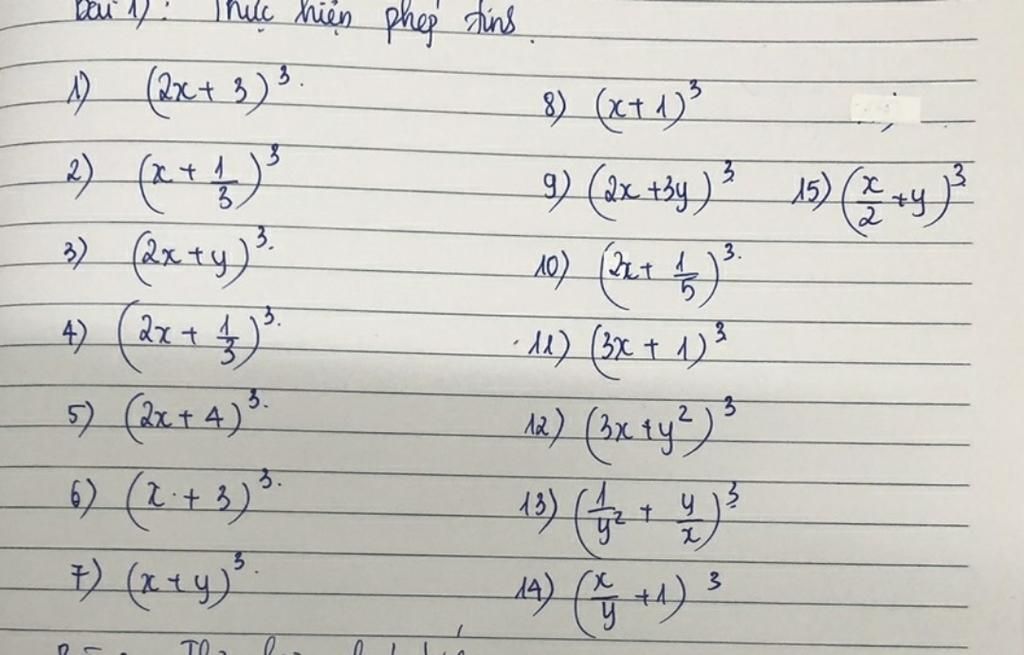 Bài 1): Thực hiện phép tính.
1) (2x + 3)³.
2) (x + 1/3)³
3) (2x + y)³.
4) (2x + 1/3)³.
5) (2x + 4)³.
6) (x + 3)³.
7) (x + y)³.
8) (x + 1)³
9) (2x + 3y)³
10) (2x + 1/5)³.
11) (3x + 1)³
12) (3x + y²)³
13) (1/y² + y/x)³
14) (x/y + 1)³
15) (x/2 + y)³